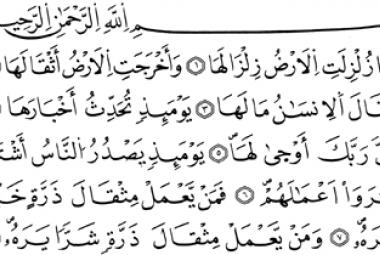 ـمِ اِللَّهِ اِلرَّحْمَٰنِ اِلرَّحِيـ
ا زُلْزِلَتِ اِلَارْضُ زِلْزَالَهَا ١ وَأَخْرَجَتِ اِلَارْضُ أَثْقَالَهَا
ـالَ اَلِانسَٰنُ مَا لَهَا ٣ يَوْمَئِذٍ تُحَدِّثُ أَخْبَارَهَا
نَّ رَبَّكَ أَوْحَىٰ لَهَا ٥ يَوْمَئِذٍ يَصْدُرُ النَّاسُ أَشْتَـ
ـرَوَاْ اَعْمَٰلَهُمْ ٦ فَمَنْ يَّعْمَلْ مِثْقَالَ ذَرَّةٍ خَـ
ـرَهُۥ ٧ وَمَنْ يَّعْمَلْ مِثْقَالَ ذَرَّةٍ شَرًّا يَرَهُۥ